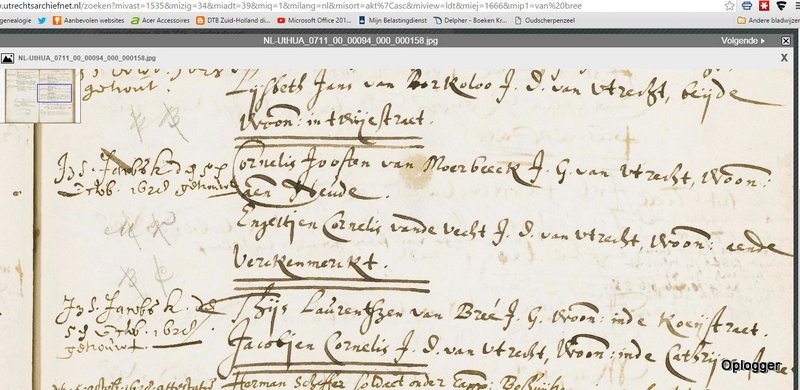 .utrechtsarchiefnet.nl/zoeken?mivast=1535&mizig=34&miadt=39&miq=1&milang=nl&misort=akt%7Casc&miview=ldt&miej=1666&mip1=van%20bree
Aan de slag
Aanbevolen websites
Acer Accessoires
DTB Zuid-Holland di...
Microsoft Office 201...
Mijn Belastingdienst
Delpher - Boeken Kr...
Oudscherpenzeel
Andere bladwijzers
NL-UtHUA_0711_00_00094_000_000158.jpg
Volgende
NL-UtHUA_0711_00_00094_000_000158.jpg
X
getrout.
Lijsbeth Jans van Borkoloo J. d. van Utrecht, beijde
Woon: in twijestraet.
In S. Jacobs k. d
1628 getrouwt
Cornelis Joosten van Moerbeeck J. G. van Utrecht, Woon:
aen Heude.
Engeltjen Cornelis vande Vecht J. d. van Utrecht, Woon: aende
Verckenmerckt.
In S. Jacobs k.
1628.
getrouwt.
Thijs Laurentszen van Breé J. G. Woon: inde Koeijstraet.
Jacobjen Cornelis J. d. van Utrecht, Woon: inde Cathrijne
Herman Scheffer soldaet onder Capp:
Oplogger